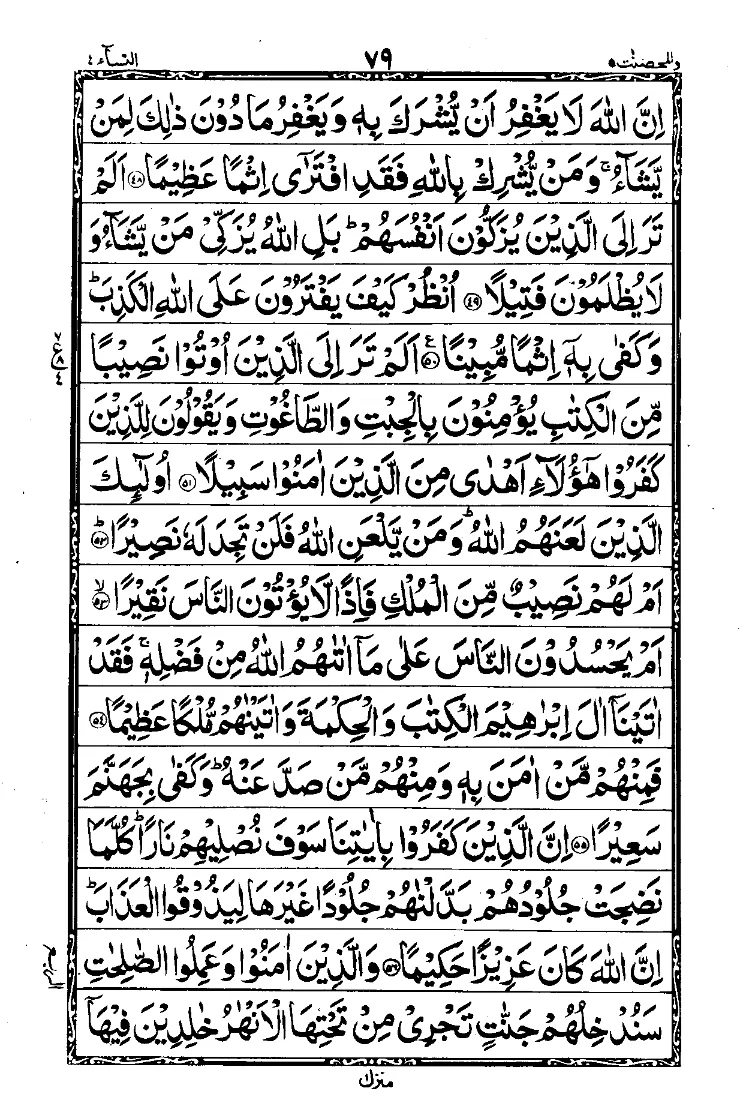 والمحصنت ٥
٧٩
النسآء ٤
اِنَّ اللّٰهَ لَا يَغْفِرُ اَنْ يُّشْرَكَ بِهٖ وَيَغْفِرُ مَا دُوْنَ ذٰلِكَ لِمَنْ
يَّشَآءُ ۚ وَمَنْ يُّشْرِكْ بِاللّٰهِ فَقَدِ افْتَرٰٓى اِثْمًا عَظِيْمًا ﴿٤٨﴾ اَلَمْ
تَرَ اِلَى الَّذِيْنَ يُزَكُّوْنَ اَنْفُسَهُمْ ؕ بَلِ اللّٰهُ يُزَكِّيْ مَنْ يَّشَآءُ وَ
لَا يُظْلَمُوْنَ فَتِيْلًا ﴿٤٩﴾ اُنْظُرْ كَيْفَ يَفْتَرُوْنَ عَلَى اللّٰهِ الْكَذِبَ ؕ
وَكَفٰى بِهٖٓ اِثْمًا مُّبِيْنًا ﴿٥٠﴾ ع اَلَمْ تَرَ اِلَى الَّذِيْنَ اُوْتُوْا نَصِيْبًا
مِّنَ الْكِتٰبِ يُؤْمِنُوْنَ بِالْجِبْتِ وَالطَّاغُوْتِ وَيَقُوْلُوْنَ لِلَّذِيْنَ
كَفَرُوْا هٰٓؤُلَآءِ اَهْدٰى مِنَ الَّذِيْنَ اٰمَنُوْا سَبِيْلًا ﴿٥١﴾ اُولٰٓئِكَ
الَّذِيْنَ لَعَنَهُمُ اللّٰهُ ؕ وَمَنْ يَّلْعَنِ اللّٰهُ فَلَنْ تَجِدَ لَهٗ نَصِيْرًا ﴿٥٢﴾ ؕ
اَمْ لَهُمْ نَصِيْبٌ مِّنَ الْمُلْكِ فَاِذًا لَّا يُؤْتُوْنَ النَّاسَ نَقِيْرًا ﴿٥٣﴾ ۙ
اَمْ يَحْسُدُوْنَ النَّاسَ عَلٰى مَآ اٰتٰىهُمُ اللّٰهُ مِنْ فَضْلِهٖ ۚ فَقَدْ
اٰتَيْنَآ اٰلَ اِبْرٰهِيْمَ الْكِتٰبَ وَالْحِكْمَةَ وَاٰتَيْنٰهُمْ مُّلْكًا عَظِيْمًا ﴿٥٤﴾
فَمِنْهُمْ مَّنْ اٰمَنَ بِهٖ وَمِنْهُمْ مَّنْ صَدَّ عَنْهُ ؕ وَكَفٰى بِجَهَنَّمَ
سَعِيْرًا ﴿٥٥﴾ اِنَّ الَّذِيْنَ كَفَرُوْا بِاٰيٰتِنَا سَوْفَ نُصْلِيْهِمْ نَارًا ؕ كُلَّمَا
نَضِجَتْ جُلُوْدُهُمْ بَدَّلْنٰهُمْ جُلُوْدًا غَيْرَهَا لِيَذُوْقُوا الْعَذَابَ ؕ
اِنَّ اللّٰهَ كَانَ عَزِيْزًا حَكِيْمًا ﴿٥٦﴾ وَالَّذِيْنَ اٰمَنُوْا وَعَمِلُوا الصّٰلِحٰتِ
سَنُدْخِلُهُمْ جَنّٰتٍ تَجْرِيْ مِنْ تَحْتِهَا الْاَنْهٰرُ خٰلِدِيْنَ فِيْهَآ
منزل